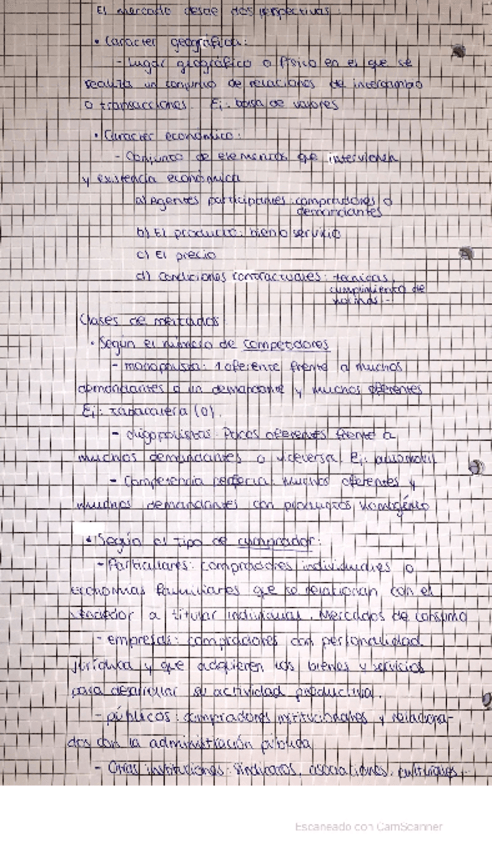 El mercado desde dos perspectivas:
• Carácter geográfico:
- Lugar geográfico o físico en el que se
realiza un conjunto de relaciones de intercambio
o transacciones. Ej: bolsa de valores
• Carácter económico:
- Conjunto de elementos que intervienen
y existencia económica
a) Agentes participantes: compradores o
demandantes
b) El producto: bien o servicio
c) El precio
d) Condiciones contractuales: técnicas,
cumplimiento de
normas...
Clases de mercados
• Según el número de competidores
- monopolista: 1 oferente frente a muchos
demandantes o un demandante y muchos oferentes
Ej: tabacalera
- oligopolistas: Pocos oferentes frente a
muchos demandantes o viceversa. Ej: automóvil
- Competencia perfecta: muchos oferentes y
muchos demandantes con productos homogéneo
• Según el tipo de comprador:
- Particulares: compradores individuales o
economías familiares que se relacionan con el
vendedor a titular individual. Mercados de consumo
- empresas: compradores con personalidad
jurídica y que adquieren los bienes y servicios
para desarrollar su actividad productiva.
- públicos: compradores institucionales y relaciona-
dos con la administración pública
- Otras instituciones: sindicatos, asociaciones, culturales...
Escaneado con CamScanner